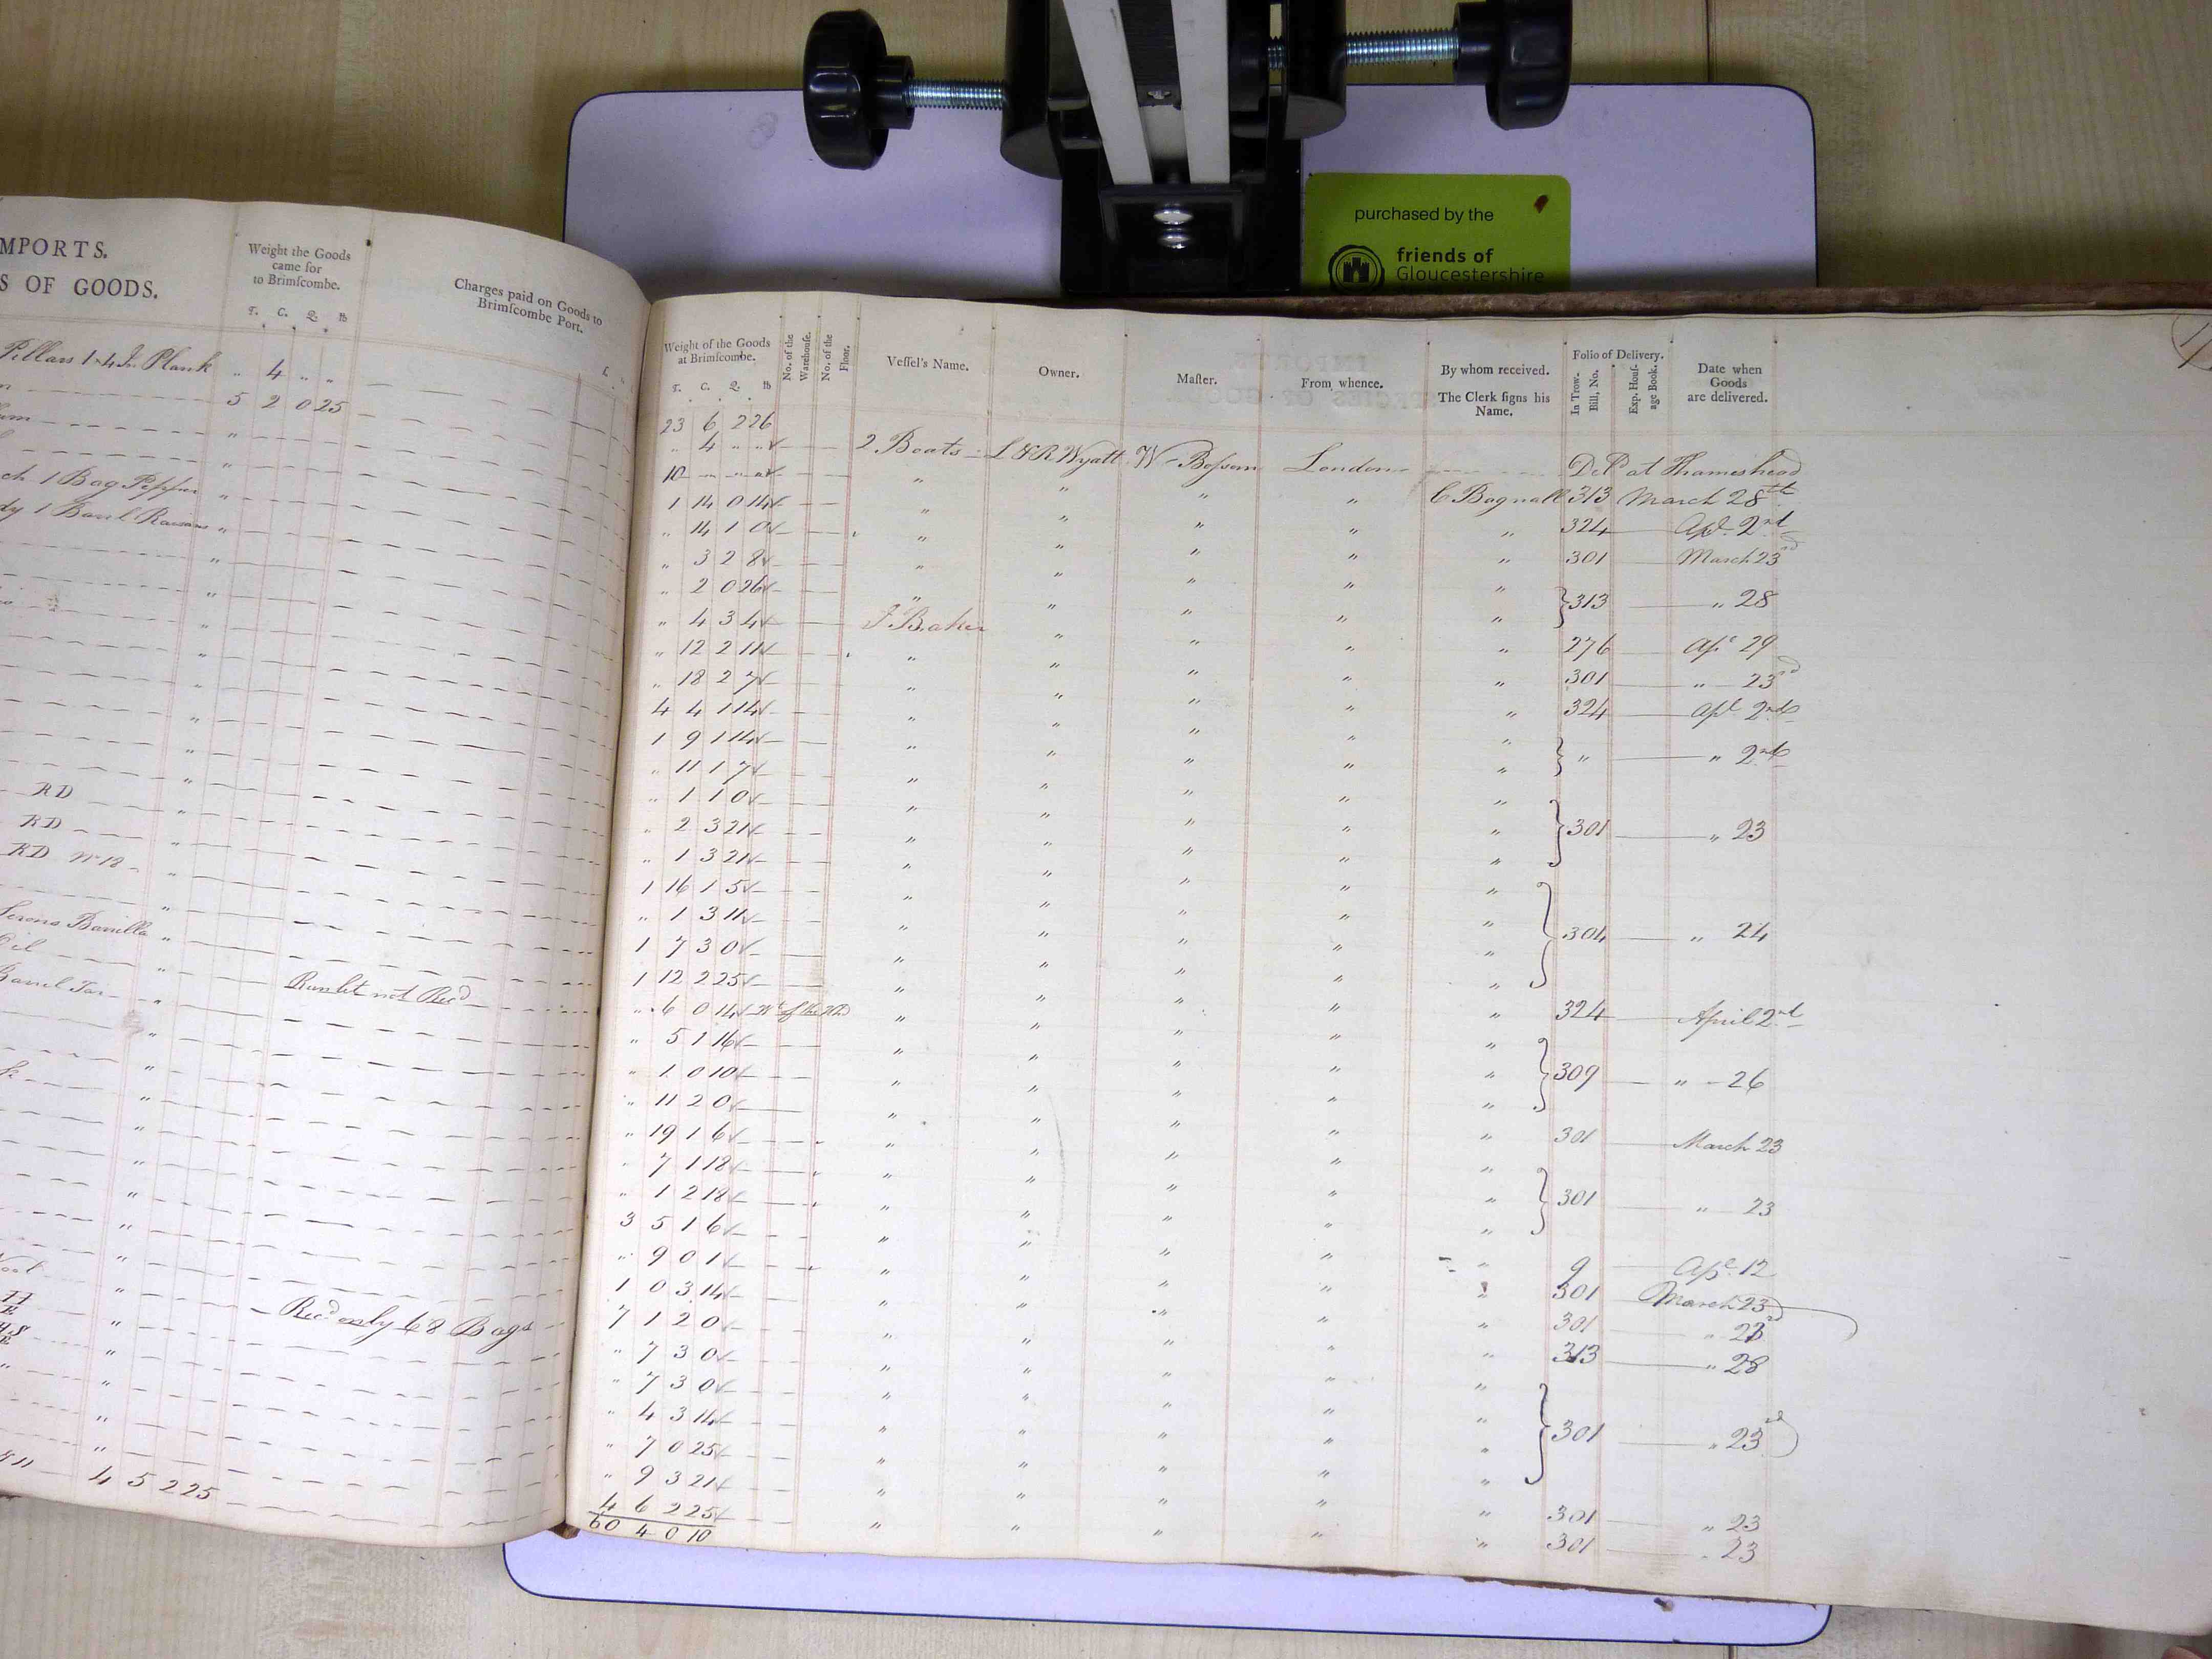 purchased by the
friends of
Gloucestershire
IMPORTS.
S OF GOODS.
Weight the Goods
came for
to Brimscombe.
T. C. Q. lb
Charges paid on Goods to
Brimscombe Port.
£.
Pillars 1-4 In Plank " 4 " "
5 2 0 25
ch 1 Bag Pepper "
dy 1 Barrel Raisans "
RD
RD
RD No 12
Serons Barrilla "
Oil
Barrel Tar
Runlet not Recd
Recd only 68 Bags
4 5 2 25
Weight of the Goods
at Brimscombe.
T. C. Q. lb
No. of the
Warehouse.
No. of the
Floor.
Vessel's Name.
Owner.
Master.
From whence.
By whom received.
The Clerk signs his
Name.
Folio of Delivery.
In Trow-
Bill, No.
Exp. House-
age Book.
Date when
Goods
are delivered.
23 6 2 26
" 4 " " 2 Boats L & R Wyatt W Bossom London Deld at Thameshead
10 " " " " " " " C Bagnall 313 March 28th
1 14 0 14 " " " " " 324 Apl. 2nd
" 14 1 0 " " " " " 301 March 23d
" 3 2 8 " " " " "
" 2 0 26 " " " " " 313 " 28
" 4 3 4 J. Baker " " " "
" 12 2 11 " " " " " 276 Apl 29
" 18 2 7 " " " " " 301 " 23rd
4 4 1 14 " " " " " 324 Apl 2nd
1 9 1 14 " " " " "
" 11 1 7 " " " " " " " 2nd
" 1 1 0 " " " " "
" 2 3 21 " " " " " 301 " 23
" 1 3 21 " " " " "
1 16 1 5 " " " " "
" 1 3 11 " " " " " 304 " 24
1 7 3 0 " " " " "
1 12 2 25 " " " " "
" 6 0 14 Wt of the Hhd " " " " " 324 April 2nd
" 5 1 16 " " " " "
" 1 0 10 " " " " " 309 " 26
" 11 2 0 " " " " "
" 19 1 6 " " " " " 301 March 23
" 7 1 18 " " " " "
" 1 2 18 " " " " " 301 " 23
3 5 1 6 " " " " "
" 9 0 1 " " " " " 9 Apl. 12
1 0 3 14 " " " " " 301 March 23d
7 1 2 0 " " " " " 301 " 23
" 7 3 0 " " " " " 313 " 28
" 7 3 0 " " " " "
" 4 3 14 " " " " " 301 " 23rd
" 7 0 25 " " " " "
" 9 3 21 " " " " "
4 6 2 25 " " " " " 301 " 23
60 4 0 10 " " " " " 301 " 23